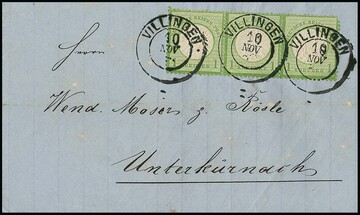 VILLINGEN VILLINGEN VILLINGEN
10 10 10
NOV NOV NOV
Herrn
Wend. Moser z. Rösle
Unterkürnach